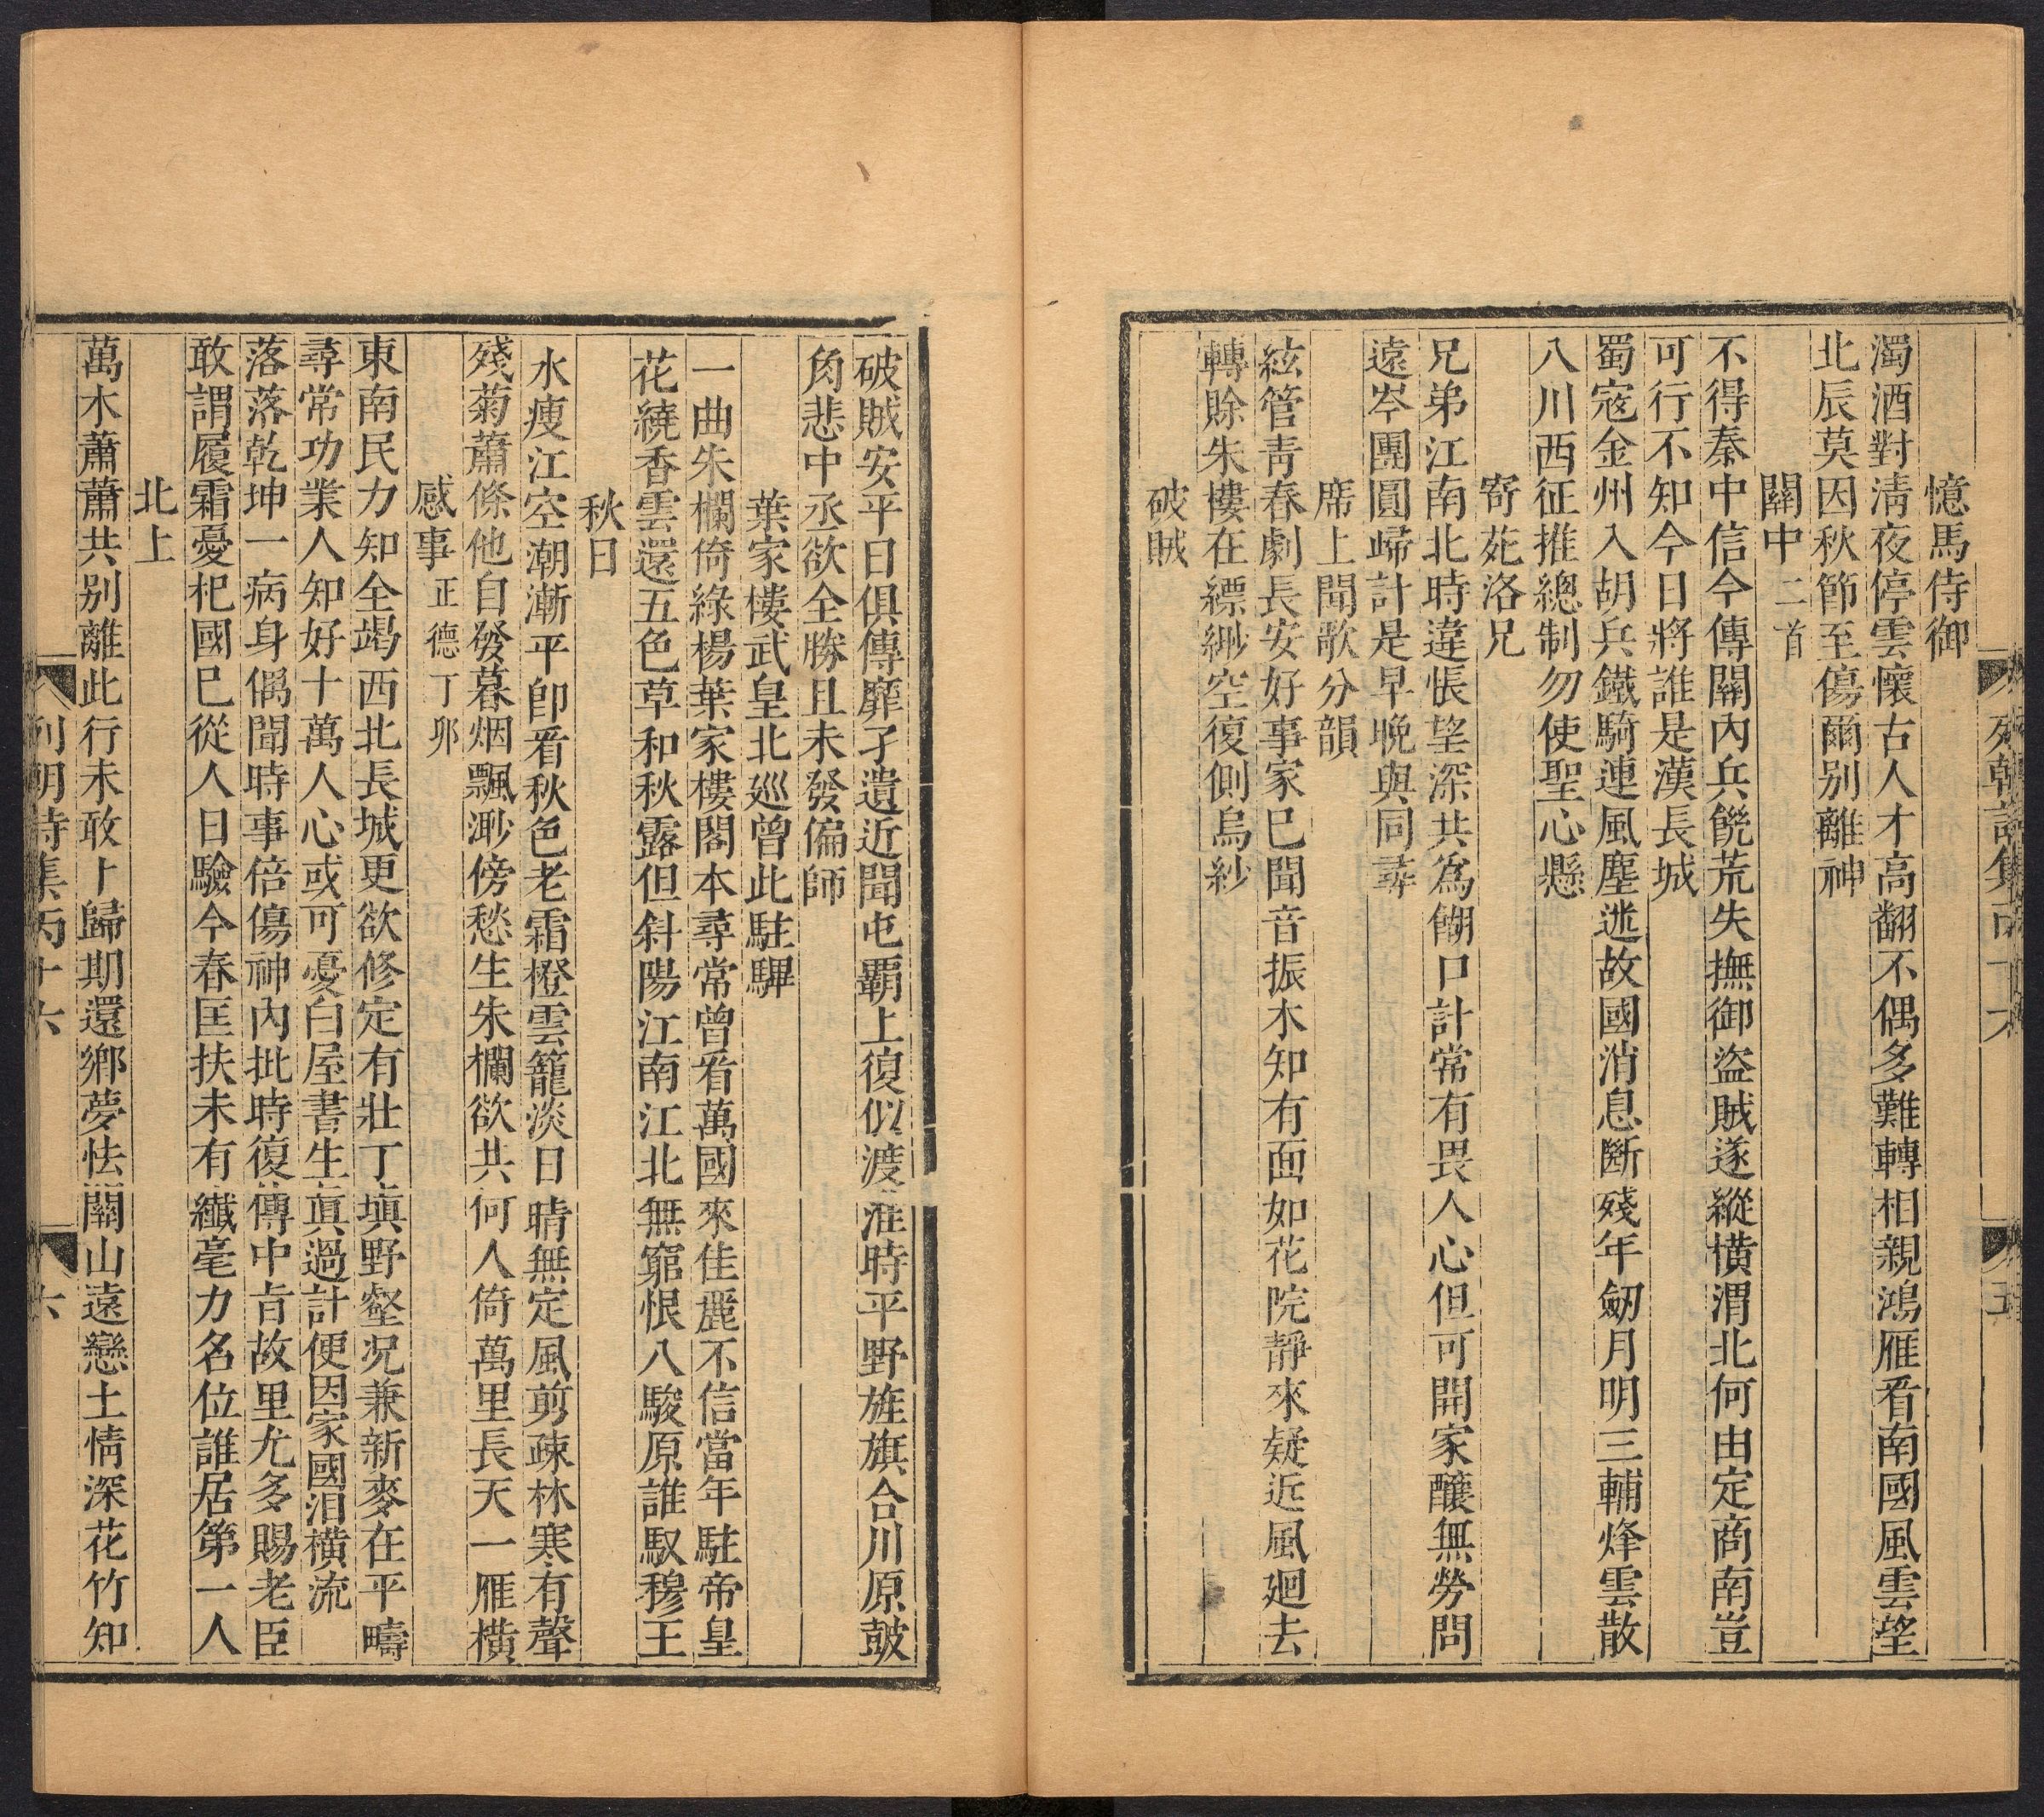 憶馬侍御
濁酒對淸夜停雲懷古人才高翻不偶多難轉相親鴻雁看南國風雲望
北辰莫因秋節至傷爾别離神
關中二首
不得秦中信今傳關內兵饑荒失撫御盜賊遂縱橫渭北何由定商南豈
可行不知今日將誰是漢長城
蜀寇金州入胡兵鐵騎連風塵迷故國消息斷殘年劒月明三輔烽雲散
八川西征推總制勿使聖心懸
寄苑洛兄
兄弟江南北時違悵望深共爲餬口計常有畏人心但可開家釀無勞問
遠岑團圓歸計是早晚與同尋
席上聞歌分韻
絃管靑春劇長安好事家已聞音振木知有面如花院靜來疑近風廻去
轉賖朱樓在縹緲空復側烏紗
破賊
破賊安平日俱傳靡孑遺近聞屯覇上復似渡淮時平野旌旗合川原鼓
角悲中丞欲全勝且未發偏師
葉家樓武皇北廵曾此駐驆
一曲朱欄倚綠楊葉家樓閣本尋常曾看萬國來佳麗不信當年駐帝皇
花繞香雲還五色草和秋露但斜陽江南江北無窮恨八駿原誰馭穆王
秋日
水痩江空潮漸平卽看秋色老霜橙雲籠淡日晴無定風剪疎林寒有聲
殘菊蕭條他自發暮烟飄渺傍愁生朱欄欲共何人倚萬里長天一雁橫
感事正德丁夘
東南民力知全竭西北長城更欲修定有壯丁塡野壑况兼新麥在平疇
尋常功業人知好十萬人心或可憂白屋書生眞過計便因家國泪橫流
落落乾坤一病身偶聞時事倍傷神內批時復傳中旨故里尤多賜老臣
敢謂履霜憂杞國已從人日驗今春匡扶未有纖毫力名位誰居第一人
北上
萬木蕭蕭共别離此行未敢卜歸期還鄕夢怯關山遠戀土情深花竹知
列朝詩集丙十六
六